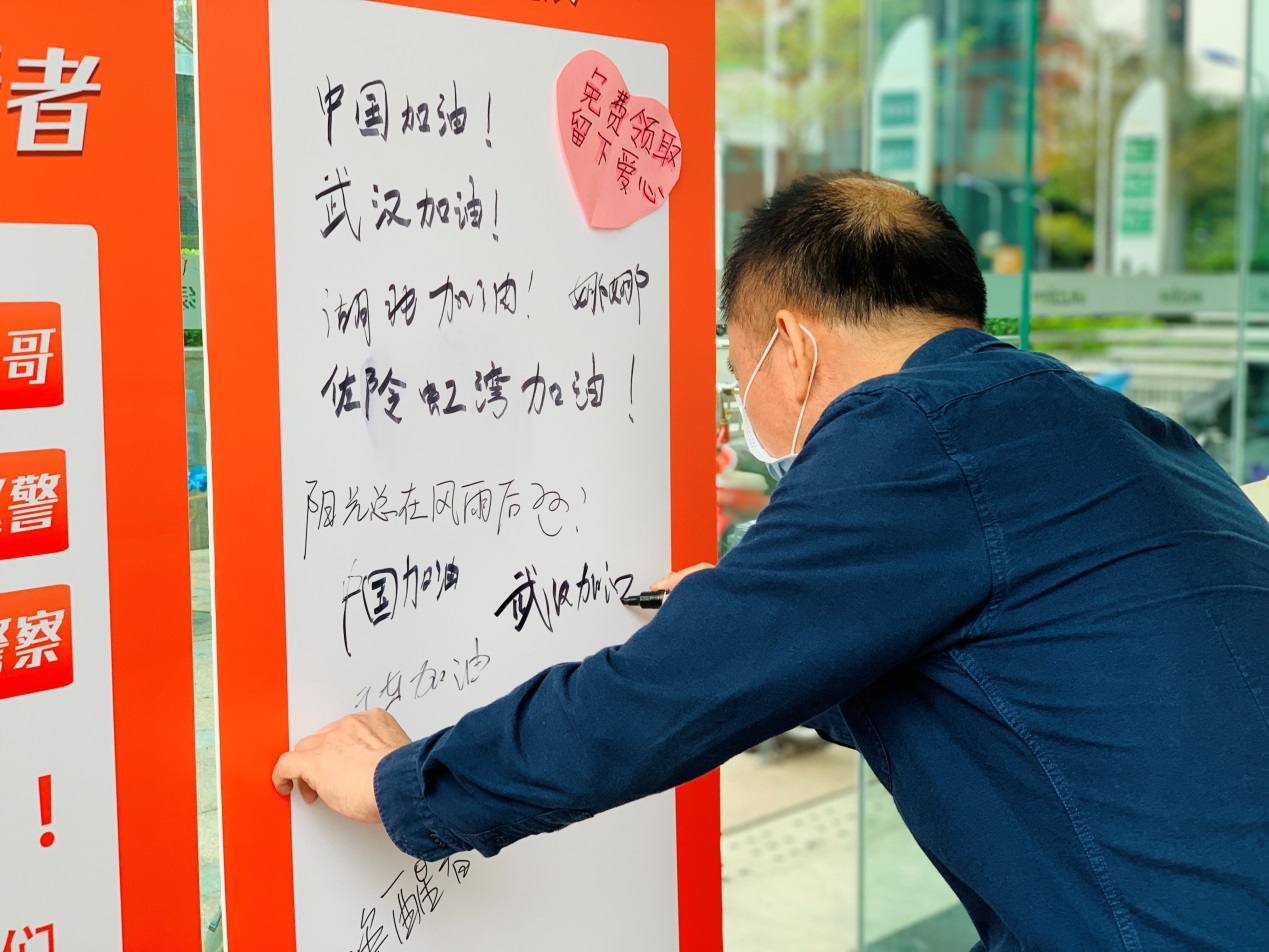 者
哥
警
警察
！
们
中国加油！
武汉加油！
湖北加油！ 娜娜
佐陵虹湾加油！
阳光总在风雨后
中国加油 武汉加氵
加油
醒着
免费领取
留下爱心